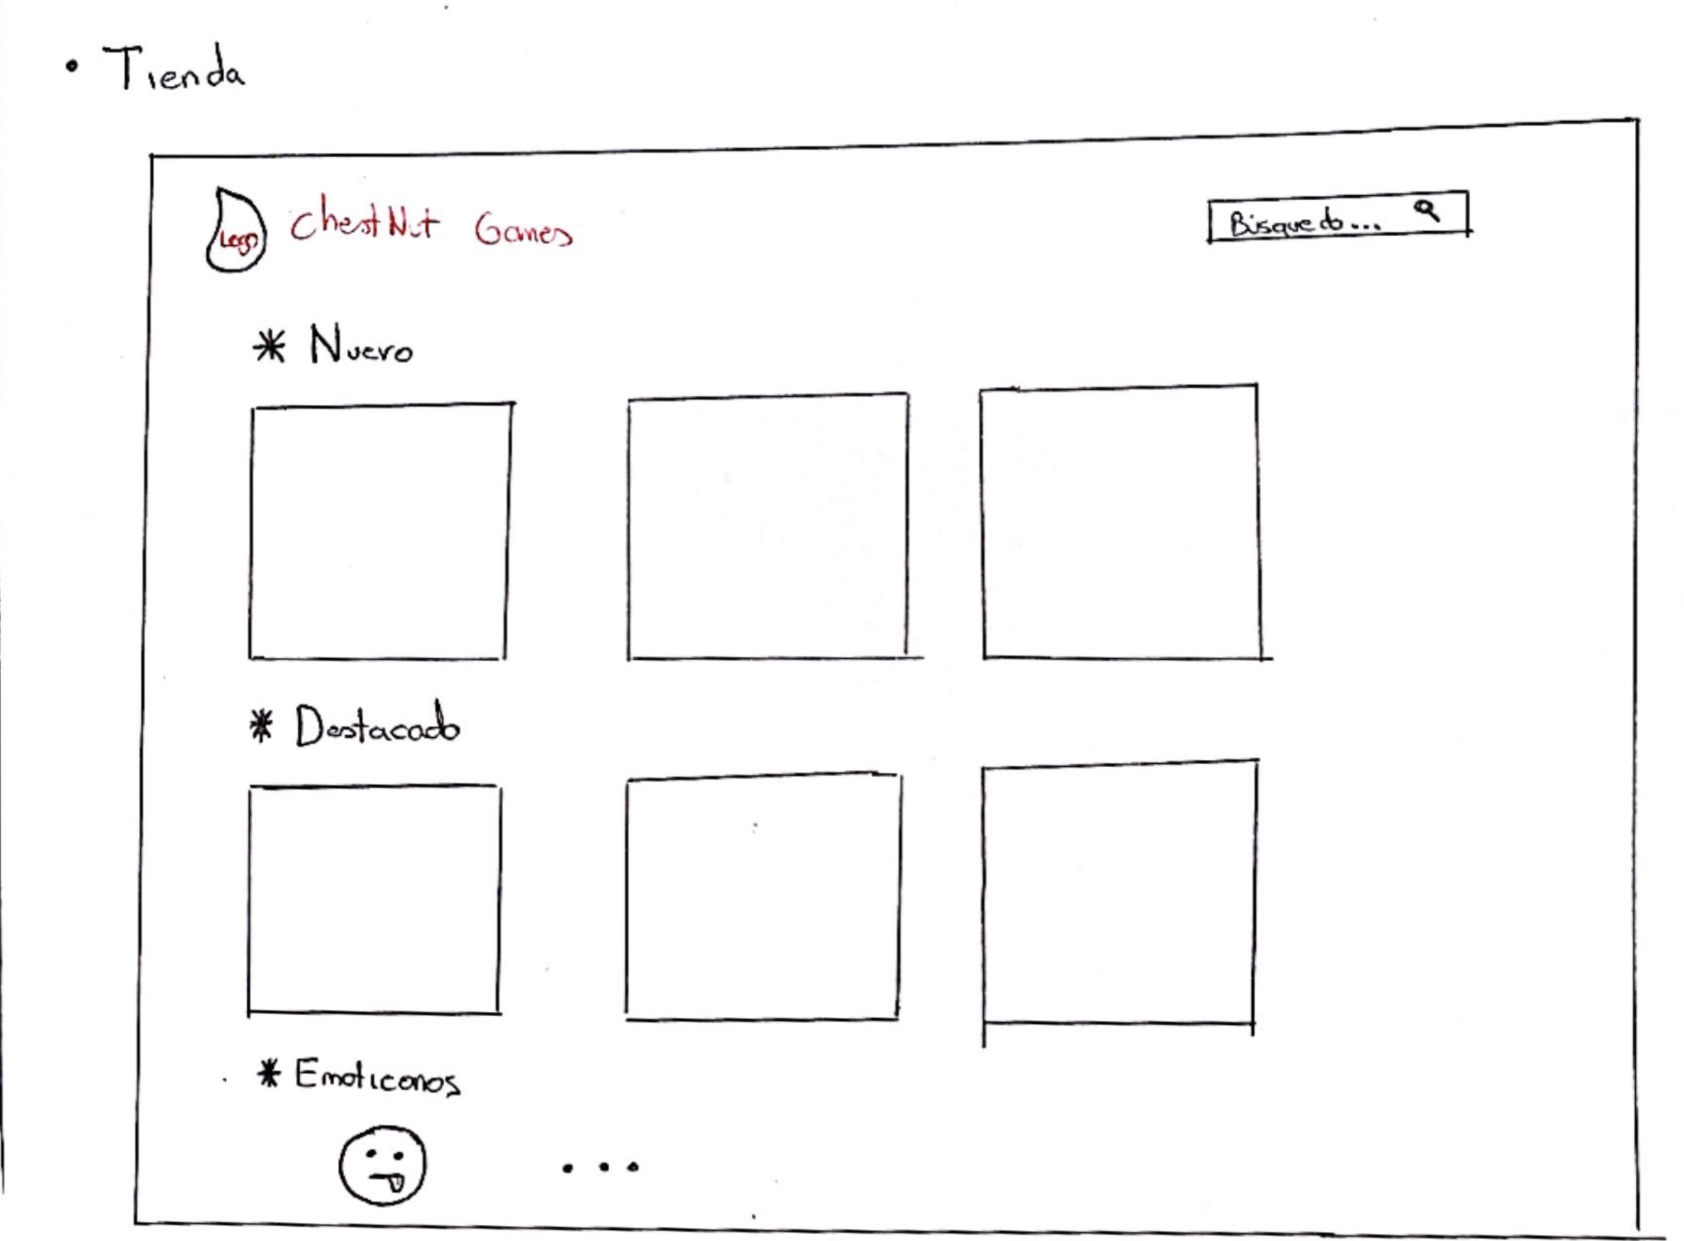 • Tienda
Logo ChestNut Games
Búsqueda...
* Nuevo
* Destacado
* Emoticonos
...